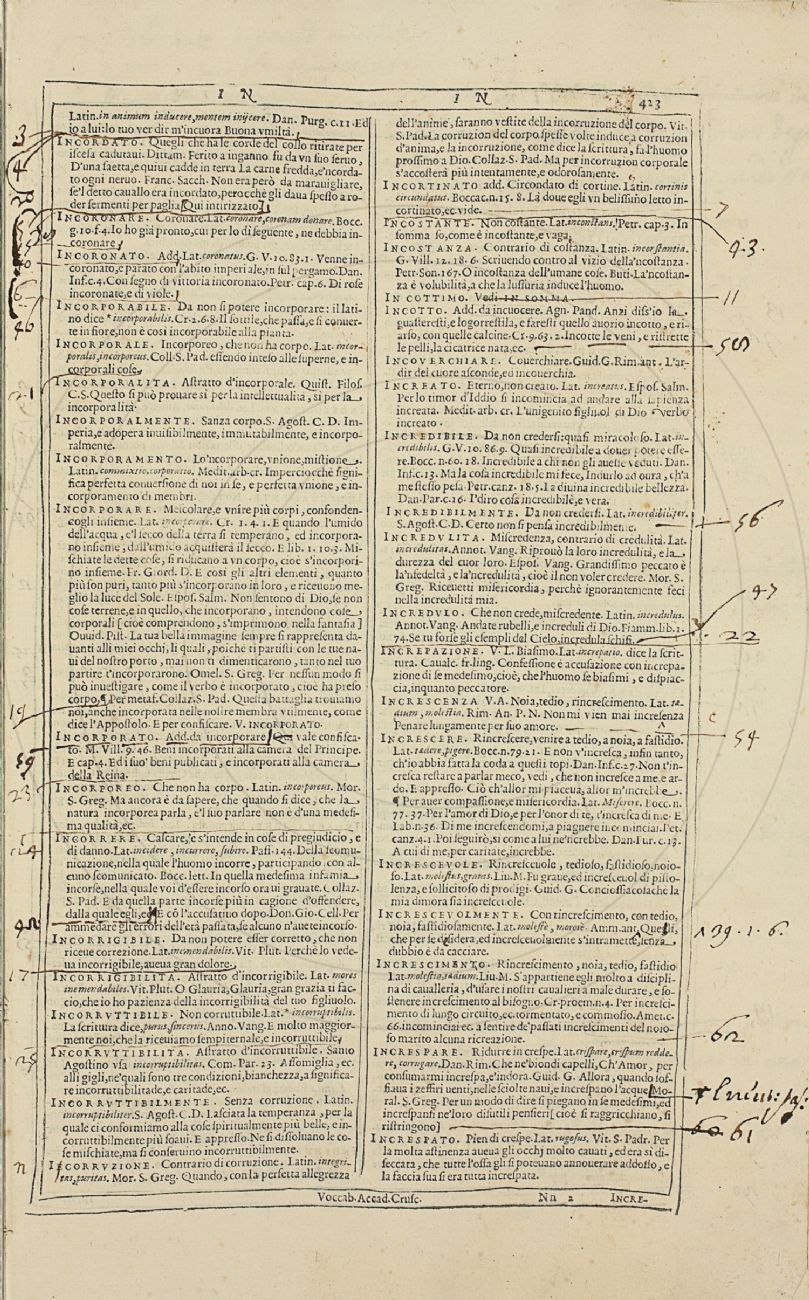 I N
I N
423
Latin. in animum inducere, mentem injicere. Dan. Purg. c.11. Ed
io a lui: lo tuo ver dir m'incuora Buona vmiltà.
INCORDATO. Quegli che ha le corde del collo ritirate per
iscesa cadutavi. Dittam. Ferito a inganno fu da vn suo seruo,
D'una saetta, e quiui cadde in terra La carne fredda, e'ncorda-
to ogni neruo. Franc. Sacch. Non era però da marauigliare,
se'l detto cauallo era incordato, però che gli daua spesso a ro-
der sermenti per paglia [Qui intirizzato]
INCORONARE. Coronare. Lat. coronare, coronam donare. Bocc.
g.10.f.4. Io ho già pronto, cui per lo dì seguente, ne debbia in-
coronare
INCORONATO. Add. Lat. coronatus. G. V. 10. 83. 1. Venne in-
coronato, e parato con l'abito imperiale, in sul pergamo. Dan.
Inf. c. 4. Con segno di vittoria incoronato. Petr. cap. 6. Di rose
incoronate, e di viole.
INCORPORABILE. Da non si potere incorporare: il lati-
no dice * incorporabilis. Cr. 2. 6. 8. Il sottile, che passa, e si conuer-
te in fiore, non è così incorporabile alla pianta.
INCORPORALE. Incorporeo, che non ha corpo. Lat. incor-
poralis, incorporeus. Coll. S. Pad. essendo inteso alle superne, e in-
corporali cose.
INCORPORALITA. Astratto d'incorporale. Quist. Filos.
C. S. Questo si può prouare si per la intellettualità, si per la
incorporalità.
INCORPORALMENTE. Sanza corpo. S. Agost. C. D. Im-
peria, e adopera inuisibilmente, immutabilmente, e incorpo-
ralmente.
INCORPORAMENTO. Lo'ncorporare, vnione, mistione.
Latin. commixtio, corporatio. Medit. arb. cr. Imperciocchè signi-
fica perfetta conuersione di noi in se, e perfetta vnione, e in-
corporamento di membri.
INCORPORARE. Mescolare, e vnire più corpi, confonden-
dogli insieme. Lat. incorporare. Cr. 1. 4. 1. E quando l'umido
dell'acqua, e'l secco della terra si temperano, ed incorpora-
no insieme, dall'umido acquisterà il secco. E lib. 1. 10. 3. Mi-
schiate le dette cose, si riducano a vn corpo, cioè s'incorpori-
no insieme. Fr. Giord. D. E così gli altri elementi, quanto
più son puri, tanto più s'incorporano in loro, e riceuono me-
glio la luce del Sole. Espos. Salm. Non sentono di Dio, se non
cose terrene, e in quello, che incorporano, intendono cose
corporali [cioè comprendono, s'imprimono nella fantasia]
Ouuid. Pist. La tua bella immagine sempre si rappresenta da-
uanti alli miei occhi, li quali, poichè ti partisti con le tue na-
ui del nostro porto, mai non ti dimenticarono, tanto nel tuo
partire t'incorporarono. Omel. S. Greg. Per nessun modo si
può inuestigare, come il verbo è incorporato, cioè ha preso
corpo. ¶ Per metaf. Collaz. S. Pad. Questa battaglia trouiamo
noi, anche incorporata nelle nostre membra vtilmente, come
dice l'Appostolo. E per confiscare. V. INCORPORATO.
INCORPORATO. Add. da incorporare vale confisca-
to. M. Vill. 9. 46. Beni incorporati alla camera del Principe.
E cap. 4. Ed i suo' beni publicati, e incorporati alla camera
della Reina.
INCORPOREO. Che non ha corpo. Latin. incorporeus. Mor.
S. Greg. Ma ancora è da sapere, che quando si dice, che la
natura incorporea parla, e'l suo parlare non è d'una medesi-
ma qualità, ec.
INCORRERE. Cascare, e s'intende in cose di pregiudicio, e
di danno. Lat. incidere, incurrere, subire. Pass. 144. Della scomu-
nicazione, nella quale l'huomo incorre, participando con al-
cuno scomunicato. Bocc. lett. In quella medesima infamia
incorse, nella quale voi d'essere incorso ora vi grauate. Collaz.
S. Pad. E da quella parte incorse più in cagione d'offendere,
dalla quale egli, ec. ¶ E cò l'accusatiuo dopo. Don. Gio. Cell. Per
ammendare gli errori dell'età passata, se alcuno n'auete incorso.
INCORRIGIBILE. Da non potere esser corretto, che non
riceue correzione. Lat. inemendabilis. Vit. Plut. Perchè lo vede-
ua incorrigibile, aueua gran dolore.
INCORRIGIBILITA. Astratto d'incorrigibile. Lat. mores
inemendabiles. Vit. Plut. O Glauria, Glauria, gran grazia ti fac-
cio, che io ho pazienza della incorrigibilità del tuo figliuolo.
INCORRVTTIBILE. Non corruttibile. Lat. * incorruptibilis.
La scrittura dice, purus, sincerus. Anno. Vang. E molto maggior-
mente noi, che la riceuiamo sempiternale, e incorruttibile.
INCORRVTTIBILITA. Astratto d'incorruttibile. Santo
Agostino vsa incorruptibilitas. Com. Par. 23. Assomiglia, ec.
alli gigli, ne' quali sono tre condizioni, bianchezza, a significa-
re incorruttibilitade, e caritade, ec.
INCORRVTTIBILMENTE. Senza corruzione. Latin.
incorruptibiliter. S. Agost. C. D. Lasciata la temperanza, per la
quale ci conformiamo alla cose spiritualmente più belle, e in-
corruttibilmente più soaui. E appresso. Ne si dissoluano le co-
se mischiate, ma si conseruino incorruttibilmente.
INCORRVZIONE. Contrario di corruzione. Latin. integri-
tas, puritas. Mor. S. Greg. Quando, con la perfetta allegrezza
dell'anime, saranno vestite della incorruzione del corpo. Vit.
S. Pad. La corruzion del corpo, spesse volte induce a corruzion
d'anima, e la incorruzione, come dice la scrittura, fa l'huomo
prossimo a Dio. Collaz. S. Pad. Ma per incorruzion corporale
s'accosterà più intentamente, e odorosamente.
INCORTINATO add. Circondato di cortine. Latin. cortinis
circundatus. Boccac. n. 15. 8. Là doue egli vn bellissimo letto in-
cortinato, ec. vide.
INCOSTANTE. Non costante. Lat. inconstans. Petr. cap. 3. In
somma so, come è incostante, e vaga
INCOSTANZA. Contrario di costanza. Latin. inconstantia.
G. Vill. 12. 18. 6. Scriuendo contro al vizio della'ncostanza.
Petr. Son. 167. O incostanza dell'umane cose. Buti. La'ncostan-
za è volubilità, a che la lussuria induce l'huomo.
IN COTTIMO. Vedi IN SOMMA.
INCOTTO. Add. da incuocere. Agn. Pand. Anzi diss'io la
guasteresti, e logorrestila, e faresti quello auorio incotto, e ri-
arso, con quelle calcine. Cr. 9. 63. 2. Incotte le veni, e ristrette
le pelli, la cicatrice nata, ec.
INCOVERCHIARE. Couerchiare. Guid. G. Rim. ant. L'ar-
dir del cuore asconde, ed incouerchia.
INCREATO. Eterno, non creato. Lat. increatus. Espos. Salm.
Per lo timor d'Iddio si incomincia ad andare alla sapienza
increata. Medit. arb. cr. L'unigenito figliuol di Dio verbo
increato.
INCREDIBILE. Da non credersi: quasi miracoloso. Lat. in-
credibilis. G. V. 10. 86. 9. Quasi incredibile a douer potere esse-
re. Bocc. n. 60. 18. Incredibile a chi non gli auesse veduti. Dan.
Inf. c. 13. Ma la cosa incredibile mi fece, Indurlo ad oura, ch'a
me stesso pesa. Petr. canz. 18. 5. La diuina incredibile bellezza.
Dan. Par. c. 16. I' dirò cosa incredibile, e vera.
INCREDIBILMENTE. Da non credersi. Lat. incredibiliter.
S. Agost. C. D. Certo non si pensa incredibilmente.
INCREDVLITA. Miscredenza, contrario di credulità. Lat.
incredulitas. Annot. Vang. Riprouò la loro incredulità, e la
durezza del cuor loro. Espos. Vang. Grandissimo peccato è
la'nfedeltà, e la'ncredulità, cioè il non voler credere. Mor. S.
Greg. Riceuetti misericordia, perchè ignorantemente feci
nella incredulità mia.
INCREDVLO. Che non crede, miscredente. Latin. incredulus.
Annot. Vang. Andate rubelli, e increduli di Dio. Fiamm. lib. 2.
74. Se tu forse gli esempli del Cielo, incredula schifi.
INCREPAZIONE. V. L. Biasimo. Lat. increpatio. dice la scrit-
tura. Caualc. fr. ling. Confessione è accusazione con increpa-
zione di se medesimo, cioè, che l'huomo se biasimi, e dispiac-
cia, inquanto peccatore.
INCRESCENZA V. A. Noia, tedio, rincrescimento. Lat. tæ-
dium, molestia. Rim. An. P. N. Non mi vien mai incresenza
Penare lungamente per suo amore.
INCRESCERE. Rincrescere, venire a tedio, a noia, a fastidio.
Lat. tædere, pigere. Bocc. n. 79. 21. E non v'incresca, infin tanto,
ch'io abbia fatta la coda a questi topi. Dan. Inf. c. 27. Non t'in-
cresca restare a parlar meco, vedi, che non incresce a me. e ar-
do. E appresso. Ciò ch'allor mi piaceua, allor m'increbbe.
¶ Per auer compassione, e misericordia. Lat. Miserere. Bocc. n.
77. 37. Per l'amor di Dio, e per l'onor di te, t'incresca di me. E
Lab. n. 36. Di me increscendomi, a piagnere incominciai. Pet.
canz. 41. Poi seguirò, sì come a lui ne'ncrebbe. Dan. Pur. c. 13.
A cui di me, per caritate, increbbe.
INCRESCEVOLE. Rincresceuole, tedioso, fastidioso, noio-
so. Lat. molestus, grauis. Liu. M. Fu graue, ed incresceuol di pisto-
lenza, e sollicitoso di prodigi. Guid. G. Conciossiacosachè la
mia dimora sia incresceuole.
INCRESCEVOLMENTE. Con rincrescimento, con tedio,
noia, fastidiosamente. Lat. molestè, morosè. Amm. ant. Quegli,
che per se desidera, ed incresceuolmente s'intramette, senza
dubbio è da cacciare.
INCRESCIMENTO. Rincrescimento, noia, tedio, fastidio
Lat. molestia, tædium. Liu. M. S'appartiene egli molto a discipli-
na di caualleria, d'usare i nostri caualieri a male durare, e so-
stenere increscimento al bisogno. Cr. proem. n. 4. Per incresci-
mento di lungo circuito, ec. tormentato, e commosso. Amet. c.
66. incominciai ec. a sentire de' passati increscimenti del noio-
so marito alcuna ricreazione.
INCRESPARE. Ridurre in crespe. Lat. crispare, crispum redde-
re, corrugare. Dan. Rim. Che ne' biondi capelli, Ch'Amor, per
consumarmi increspa, e'indora. Guid. G. Allora, quando sof-
fiaua i zeffiri uenti, nelle sciolte naui, e increspano l'acque Mo-
ral. S. Greg. Per un modo di dire si piegano in se medesimi, ed
increspansi ne' loro disutili pensieri [cioè si raggricchiano, si
ristringono]
INCRESPATO. Pien di crespe. Lat. rugosus. Vit. S. Padr. Per
la molta astinenza aueua gli occhj molto cauati, ed era sì di-
seccata, che tutte l'ossa gli si poteuano annouerare addosso, e
la faccia sua si era tutta increspata.
Voccab. Accad. Crusc.
Nn 2
INCRE-
3
4
20
46
21
19
59
23
24
42
17
25
n
7
43
11
50
56
47
22
54
139. 1. 6.
62
60 61